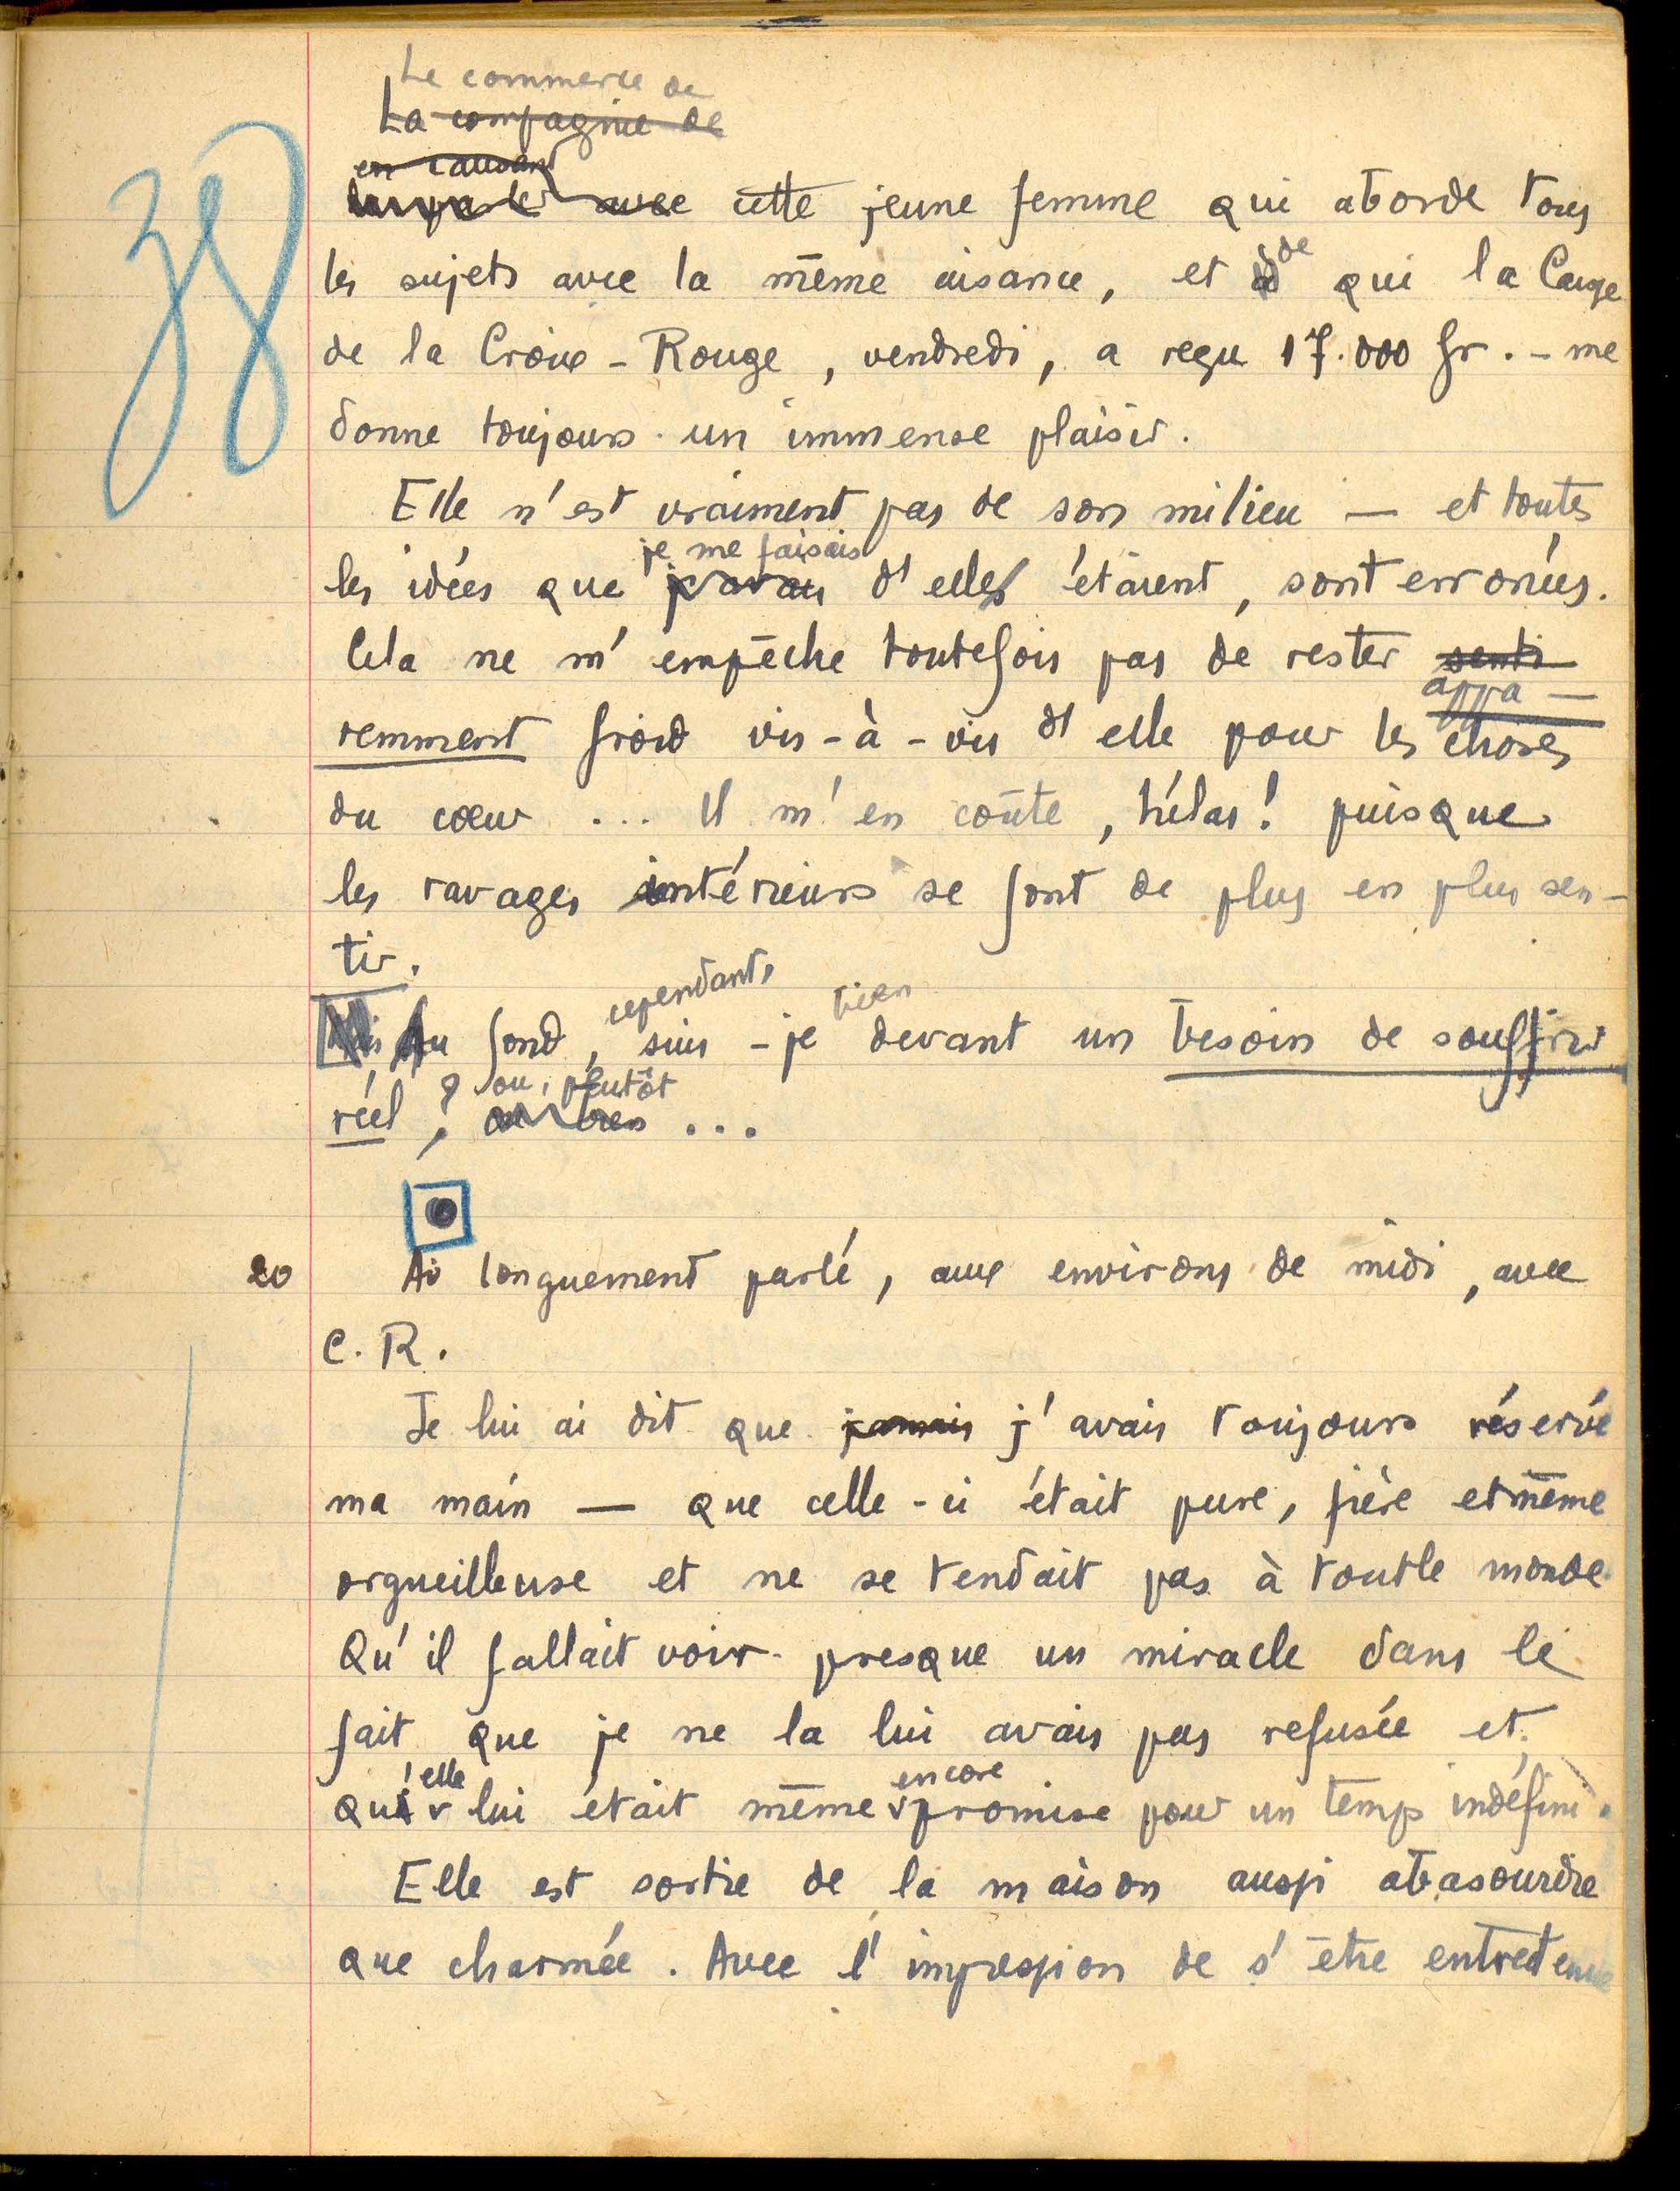 38
Le commerce de
La compagnie de
en causant
avec cette jeune femme qui aborde tous
les sujets avec la même aisance, et de qui la Caisse
de la Croix-Rouge, vendredi, a reçu 17.000 fr. - me
donne toujours un immense plaisir.
Elle n'est vraiment pas de son milieu — et toutes
je me faisais
les idées que j'avais d'elle étaient, sont erronées.
Cela ne m'empêche toutefois pas de rester senti
appa-
remment froid vis-à-vis d'elle pour les choses
du cœur ... Il m'en coûte, hélas! puisque
les ravages intérieurs se font de plus en plus sen-
tir.
cependant, bien
Au fond, suis-je devant un besoin de souffrir
ou, plutôt
réel ? ...
20 Ai longuement parlé, aux environs de midi, avec
C. R.
Je lui ai dit que jamais j'avais toujours réservé
ma main — que celle-ci était pure, fière et même
orgueilleuse et ne se tendait pas à tout le monde.
Qu'il fallait voir presque un miracle dans le
fait que je ne la lui avais pas refusée et
'elle encore
qu lui était même promise pour un temps indéfini.
Elle est sortie de la maison aussi abasourdie
que charmée. Avec l'impression de s'être entretenue